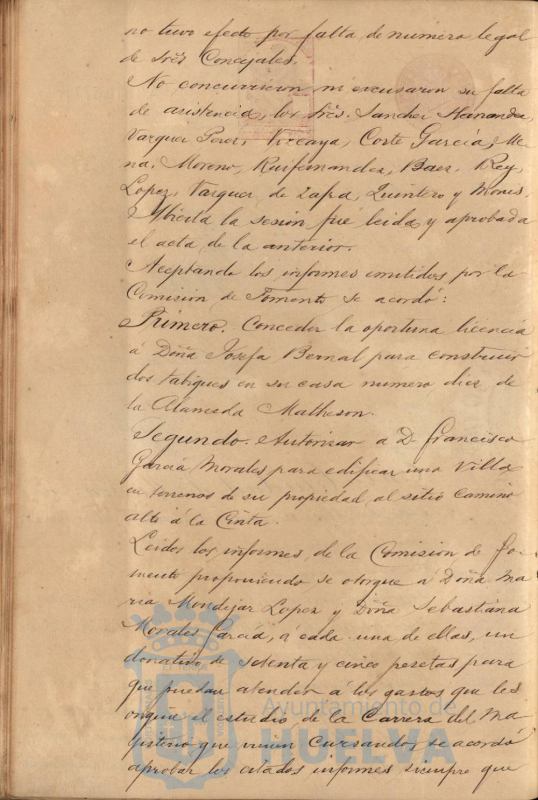 no tuvo efecto por falta de numero legal
de Sres Concejales.
No concurrieron ni excusaron su falta
de asistencia, los Sres. Sanchez Hernandez,
Vazquez Perez, Vizcaya, Corte Garcia, Me-
na, Moreno, Ruifernandez, Baez, Rey
Lopez, Vazquez de Zafra, Quintero y Mones.
Abierta la sesion fué leida y aprobada
el acta de la anterior.
Aceptando los informes emitidos por la
Comision de Fomento se acordó:
Primero. Conceder la oportuna licencia
á Doña Josefa Bernal para construir
dos tabiques en su casa numero diez de
la Alameda Matheson.
Segundo. Autorizar a D. Francisco
Garcia Morales para edificar una Villa
en terrenos de su propiedad, al sitio Camino
alto á la Cinta.
Leidos los informes de la Comision de Fo-
mento proponiendo se otorgue á Doña Ma-
ria Mondejar Lopez y Doña Sebastiana
Morales Garcia, á cada una de ellas, un
donativo de setenta y cinco pesetas para
que puedan atender á los gastos que les
el estudio de la Carrera del Ma-
gisterio que vienen cursando, se acordó
aprobar los citados informes siempre que
Ayuntamiento de
HUELVA